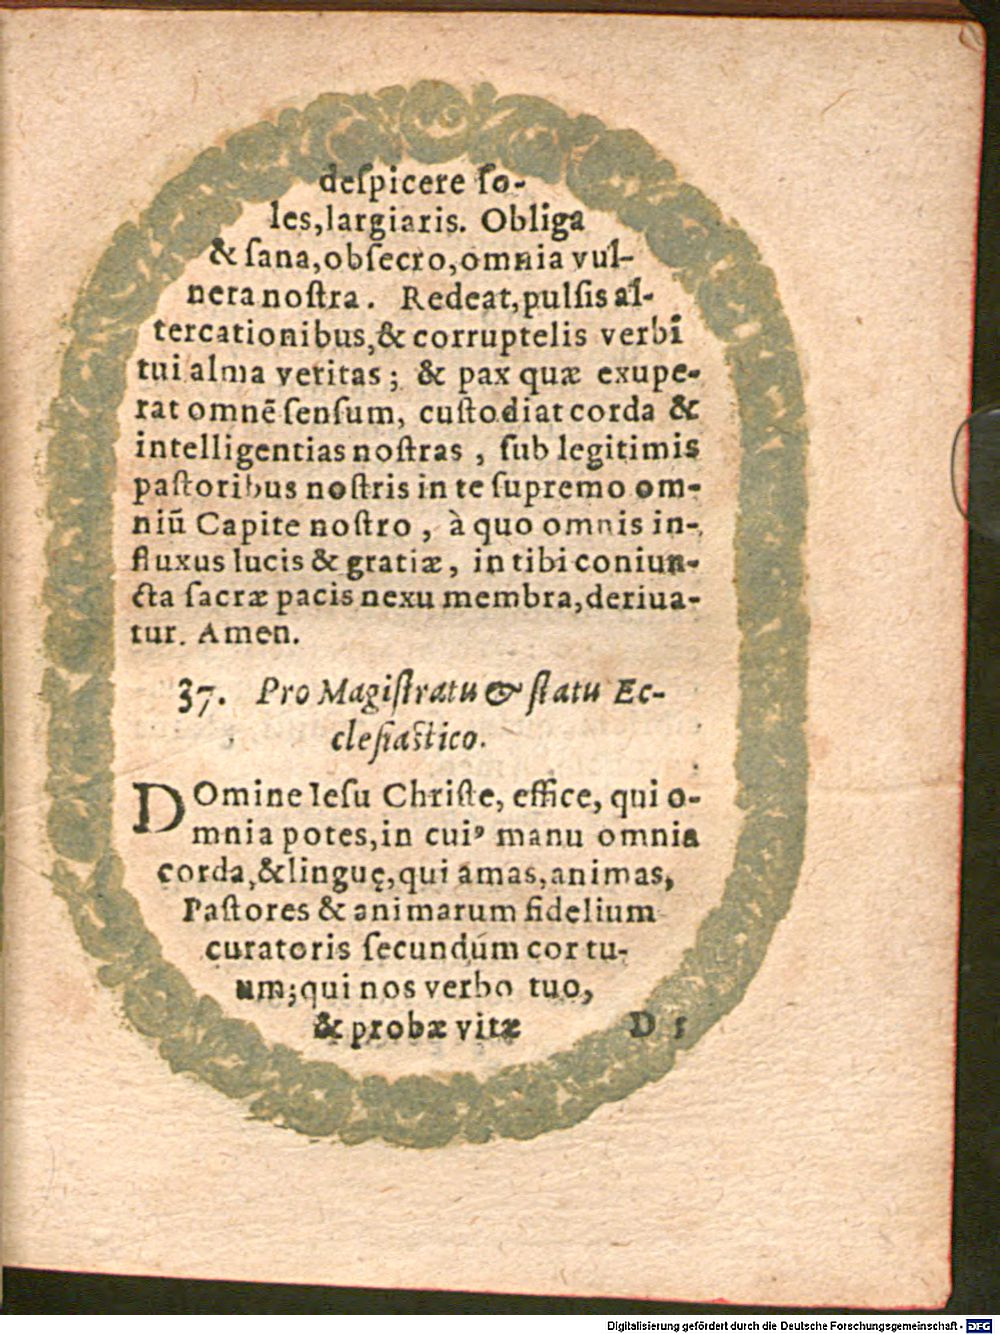 deſpicere ſo-
les,largiaris. Obliga
& ſana,obſecro,omnia vul-
nera noſtra. Redeat,pulſis al-
tercationibus,& corruptelis verbi
tui alma veritas; & pax quæ exupe-
rat omnē ſenſum, cuſtodiat corda &
intelligentias noſtras, ſub legitimis
paſtoribus noſtris in te ſupremo om-
niū Capite noſtro, à quo omnis in-
fluxus lucis & gratiæ, in tibi coniun-
cta ſacræ pacis nexu membra,deriua-
tur. Amen.
37. Pro Magiſtratu & ſtatu Ec-
cleſiaſtico.
DOmine Ieſu Chriſte, effice, qui o-
mnia potes,in cuiꝰ manu omnia
corda,&linguę,qui amas,animas,
Paſtores & animarum fidelium
curatoris ſecundúm cor tu-
um;qui nos verbo tuo,
& probæ vitæ
D 5
Digitalisierung gefördert durch die Deutsche Forschungsgemeinschaft - DFG